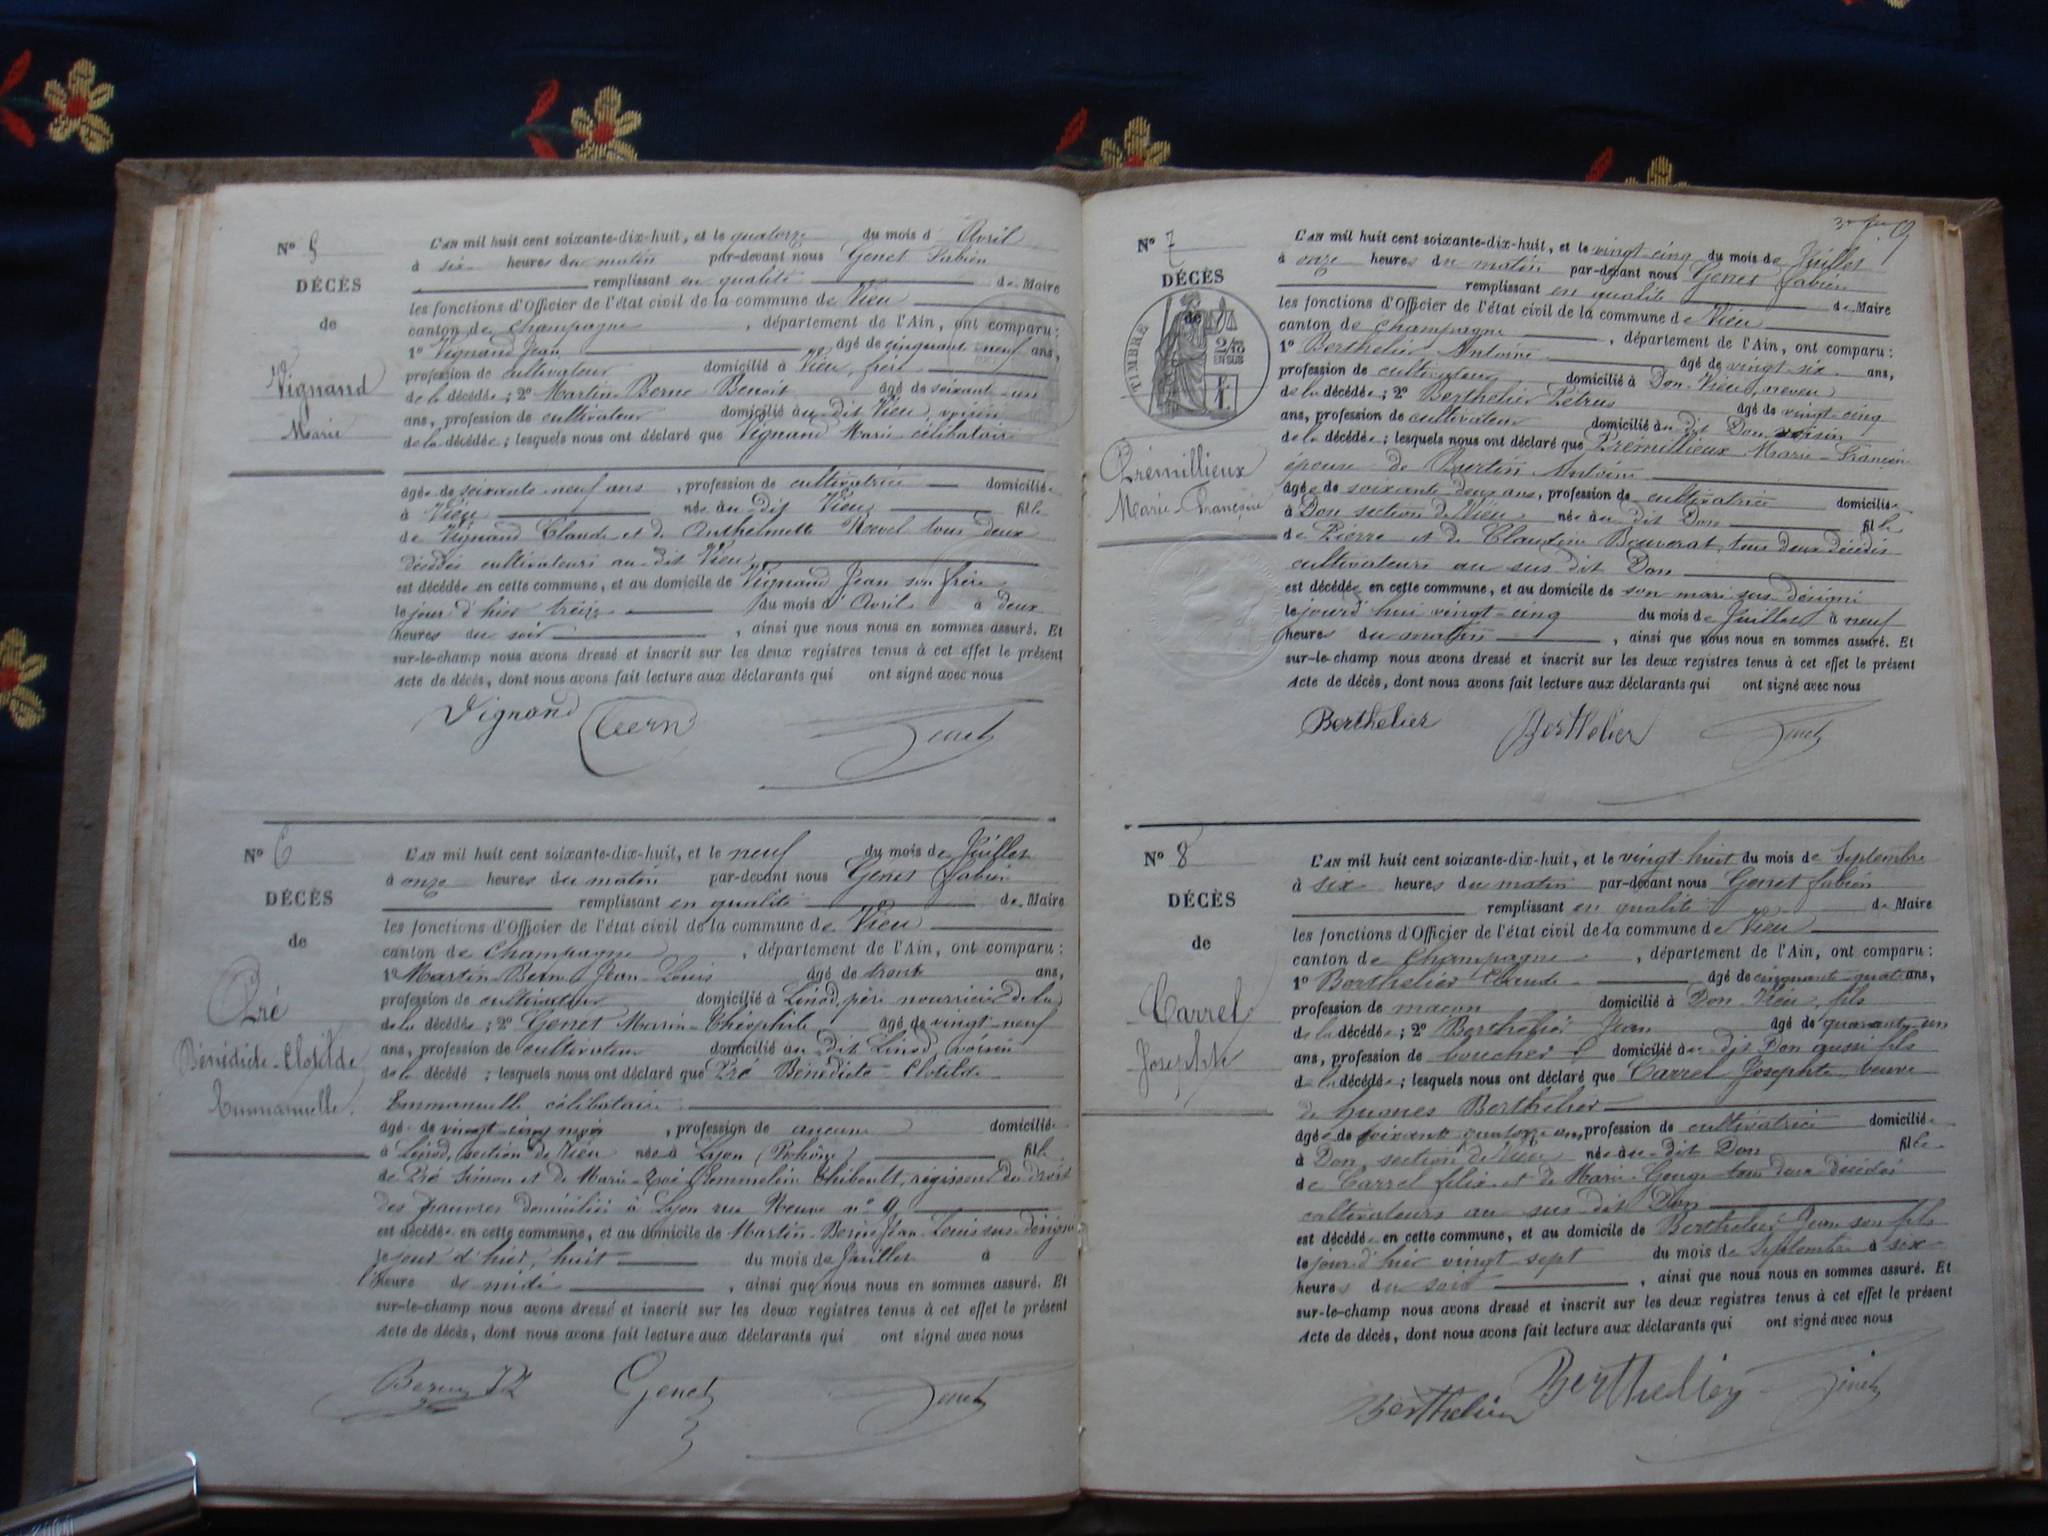 N° 5
DÉCÈS
de
Vignand
Marie
L'AN mil huit cent soixante-dix-huit, et le quatorze du mois d'Avril
à six heures du matin par-devant nous Genet Fabien
remplissant en qualité de Maire
les fonctions d'Officier de l'état civil de la commune de Vieu
canton de Champagne, département de l'Ain, ont comparu:
1° Vignand Jean âgé de cinquante neuf ans,
profession de cultivateur domicilié à Vieu, frère
de la décédée; 2° Martin Berne Benoit âgé de soixante-un
ans, profession de cultivateur domicilié au dit Vieu, voisin
de la décédée; lesquels nous ont déclaré que Vignand Marie célibataire
âgée de soixante neuf ans, profession de cultivatrice domiciliée
à Vieu née au dit Vieu fille
de Vignand Claude et de Anthelmette Revel tous deux
décédés cultivateurs au dit Vieu
est décédée en cette commune, et au domicile de Vignand Jean son frère
le jour d'hier treize du mois d'Avril à deux
heures du soir, ainsi que nous nous en sommes assuré. Et
sur-le-champ nous avons dressé et inscrit sur les deux registres tenus à cet effet le présent
Acte de décès, dont nous avons fait lecture aux déclarants qui ont signé avec nous
Vignand Bern Genet
N° 6
DÉCÈS
de
Pré
Bénédicte-Clotilde
Emmanuelle.
L'AN mil huit cent soixante-dix-huit, et le neuf du mois de Juillet
à onze heures du matin par-devant nous Genet Fabien
remplissant en qualité de Maire
les fonctions d'Officier de l'état civil de la commune de Vieu
canton de Champagne, département de l'Ain, ont comparu:
1° Martin-Bern Jean-Louis âgé de trente ans,
profession de cultivateur domicilié à Linod, père nourricier de la
de la décédée; 2° Genet Marin-Théophile âgé de vingt-neuf
ans, profession de cultivateur domicilié au dit Linod, voisin
de la décédé; lesquels nous ont déclaré que Pré Bénédicte Clotilde
Emmanuelle célibataire
âgé de vingt cinq mois, profession de aucune domicilié
à Linod, section de Vieu née à Lyon (Rhône) fille
de Pré Simon et de Marie-Zoé Thibault, régisseur du droit
des pauvres domiciliés à Lyon rue Neuve n° 9
est décédée en cette commune, et au domicile de Martin-Berne Jean Louis sus-désigné
le jour d'hier, huit du mois de Juillet à
l'heure de midi, ainsi que nous nous en sommes assuré. Et
sur-le-champ nous avons dressé et inscrit sur les deux registres tenus à cet effet le présent
Acte de décès, dont nous avons fait lecture aux déclarants qui ont signé avec nous
Genet Genet
N° 7
DÉCÈS
de
TIMBRE
2/10
EN SUS
Prémillieux
Marie-Françoise
L'AN mil huit cent soixante-dix-huit, et le vingt-cinq du mois de Juillet
à onze heures du matin par-devant nous Genet Fabien
remplissant en qualité de Maire
les fonctions d'Officier de l'état civil de la commune de Vieu
canton de Champagne, département de l'Ain, ont comparu:
1° Berthelier Antoine âgé de vingt six ans,
profession de cultivateur domicilié à Don-Vieu, neveu
de la décédée; 2° Berthelier Pétrus âgé de vingt-cinq
ans, profession de cultivateur domicilié au dit Don voisin
de la décédée; lesquels nous ont déclaré que Prémillieux Marie-Françoise
épouse de Burtin Antoine
âgée de soixante deux ans, profession de cultivatrice domiciliée
à Don section de Vieu née au dit Don fille
de Pierre et de Claudine Bouverat, tous deux décédés
cultivateurs au sus dit Don
est décédée en cette commune, et au domicile de son mari sus-désigné
le jourd'hui vingt-cinq du mois de Juillet à neuf
heures du matin, ainsi que nous nous en sommes assuré. Et
sur-le-champ nous avons dressé et inscrit sur les deux registres tenus à cet effet le présent
Acte de décès, dont nous avons fait lecture aux déclarants qui ont signé avec nous
Berthelier Berthelier Genet
N° 8
DÉCÈS
de
Carrel
Josephte
L'AN mil huit cent soixante-dix-huit, et le vingt-huit du mois de Septembre
à six heures du matin par-devant nous Genet Fabien
remplissant en qualité de Maire
les fonctions d'Officier de l'état civil de la commune de Vieu
canton de Champagne, département de l'Ain, ont comparu:
1° Berthelier Claude âgé de cinquante-quatre ans,
profession de maçon domicilié à Don-Vieu, fils
de la décédée; 2° Berthelier Jean âgé de quarante-un
ans, profession de boucher domicilié au dit Don aussi fils
de la décédée; lesquels nous ont déclaré que Carrel Josephte, veuve
de hugues Berthelier
âgée de soixante quatorze ans, profession de cultivatrice domiciliée
à Don, section de Vieu née au dit Don fille
de Carrel félix et de Marie Gouge tous deux décédés
cultivateurs au sus dit Don
est décédée en cette commune, et au domicile de Berthelier Jean son fils
le jour d'hier vingt sept du mois de Septembre à six
heures du soir, ainsi que nous nous en sommes assuré. Et
sur-le-champ nous avons dressé et inscrit sur les deux registres tenus à cet effet le présent
Acte de décès, dont nous avons fait lecture aux déclarants qui ont signé avec nous
Berthelier Berthelier Genet